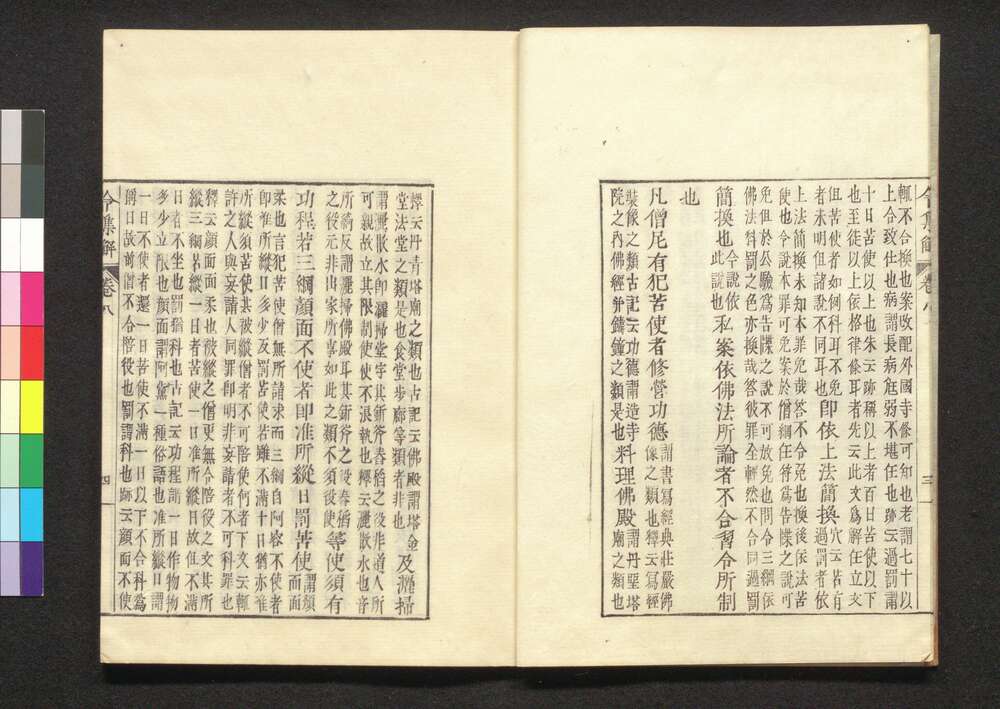 令集解　卷八　三
輒不合換也案改配外國寺條可知也老謂七十以
上合致仕也病謂長病尫弱不堪任也跡云過罰謂
十日苦使以上也朱云跡稱以上者百日苦使以下
也至徒以上依格律條耳者先云此文爲解任立文
但苦使者如何科耳不免
者未明但諸說不同耳也即依上法簡換穴云苦有過罰者依
上法簡換未知本罪免哉答不合免也換後依法苦
使也令說本罪可免案於僧綱任咎爲告牒之說可
免但於公驗爲告牒之說不可放免也問令三綱依
佛法科罰之色亦換哉答彼罪全輕然不合同過罰
簡換也令說依此說也私案依佛法所論者不合習令所制
也
凡僧尼有犯苦使者修營功德謂書寫經典莊嚴佛像之類也釋云寫經
裝像之類古記云功德謂造寺
院之內佛經并鑄鐘之類是也料理佛殿謂丹堊塔廟之類也
釋云丹青塔廟之類也古記云佛殿謂塔金
堂法堂之類是也食堂步廊等類者非也及灑掃
謂灑散水即灑掃堂宇其斬斧舂稻之役非道人所
可親故立其限制使使不浪執也釋云灑散水也音
所綺反謂灑掃佛殿耳其斬斧之役舂稻
之役元非出家所事如此之類不須役使等使須有
功程若三綱顏面不使者即准所縱日罰苦使謂顏面而
柔也言犯苦使僧無所請求而三綱自阿容不使者
即准所縱日多少及罰苦使若雖不滿十日猶亦准
所縱須苦使其被縱僧者不可陪使何者下文云輒
許之人與妄請人同罪即明非妄請者不可科罪也
釋云顏面面柔也彼縱之僧更無令陪役之文其所
縱三綱若縱一日者苦使一日准所縱日故但不滿
日者不坐也罰猶科也古記云功程謂一日作物物
多少立限也顏面謂阿黨一種俗語也准所縱日謂
一日不使者還一日苦使不滿一日以下不合科爲
稱日故前僧不合陪役也罰謂科也跡云顏面不使
令集解　卷八　四